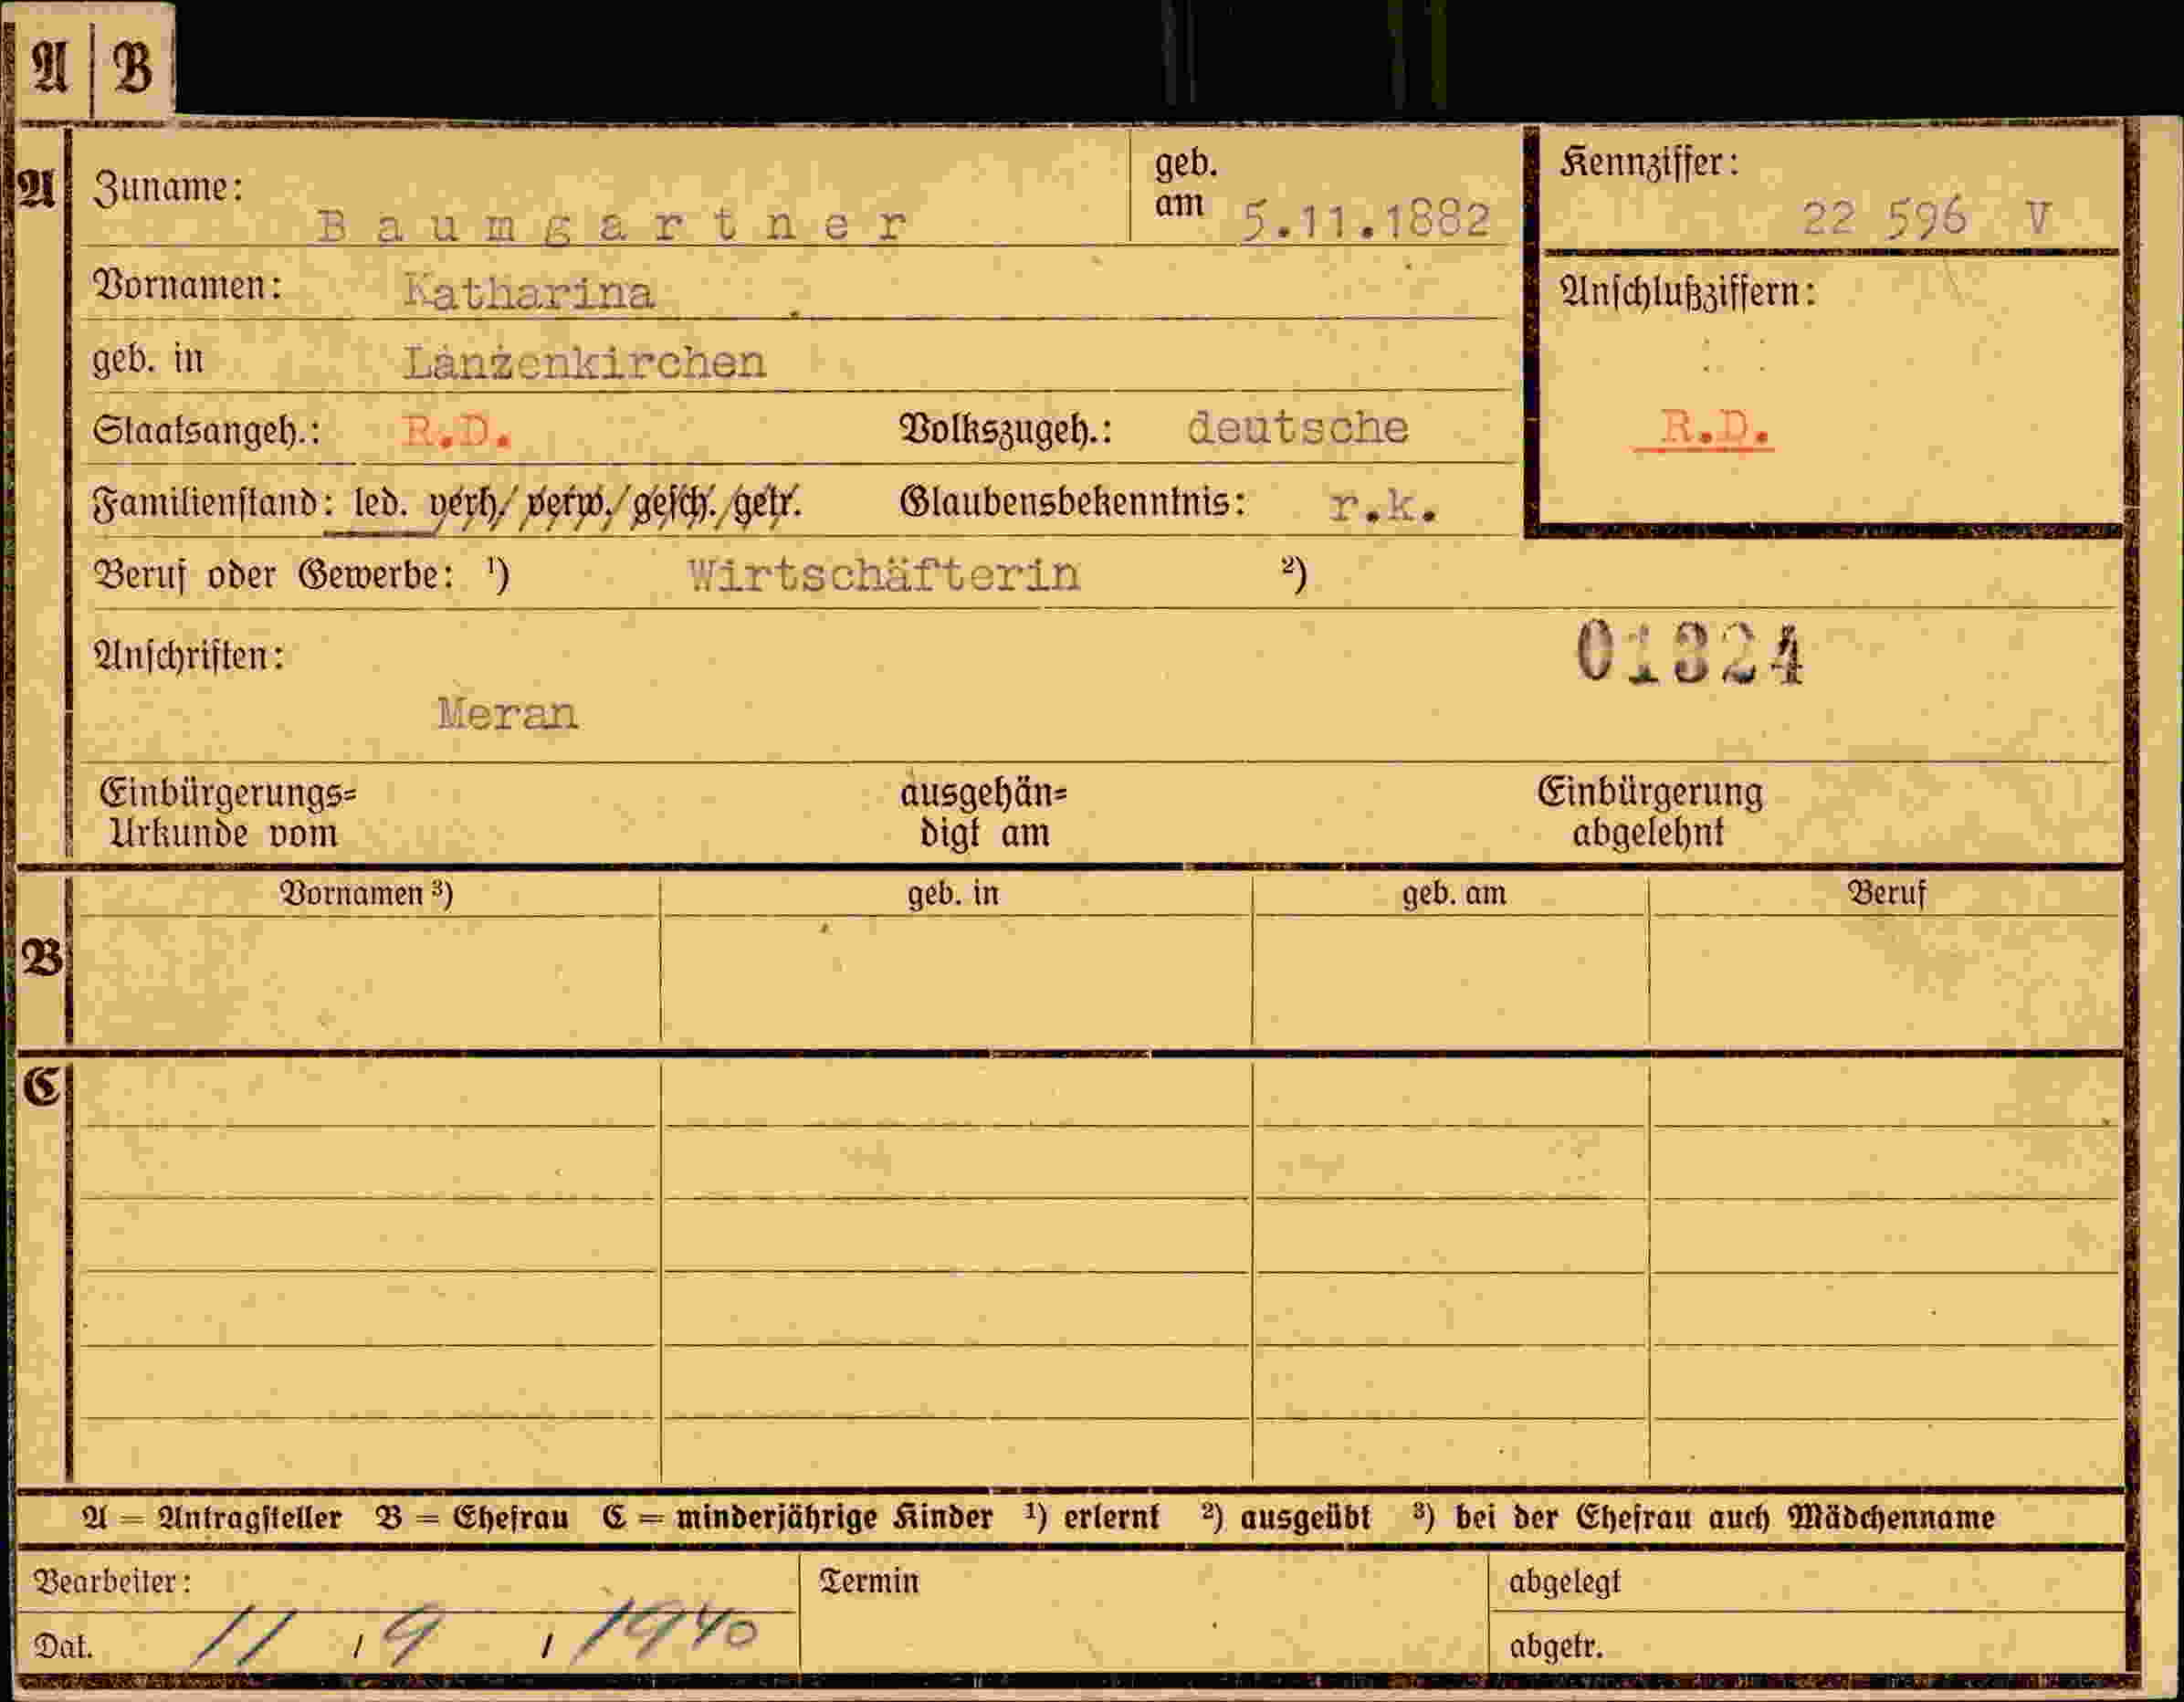 A | B
A
Zuname: Baumgartner
geb. am 5.11.1882
Kennziffer: 22 596 V
Vornamen: Katharina
Anschlußziffern:
geb. in Lanzenkirchen
Staatsangeh.: R.D. Volkszugeh.: deutsche
R.D.
Familienstand: led. verh. verw. gesch. getr. Glaubensbekenntnis: r.k.
Beruf oder Gewerbe: ¹) Wirtschäfterin ²)
Anschriften:
01324
Meran
Einbürgerungs= ausgehän= Einbürgerung
Urkunde vom digt am abgelehnt
B
Vornamen ³) geb. in geb. am Beruf
C
A = Antragsteller B = Ehefrau C = minderjährige Kinder ¹) erlernt ²) ausgeübt ³) bei der Ehefrau auch Mädchenname
Bearbeiter: Termin abgelegt
Dat. 11 / 9 / 1940 abgetr.